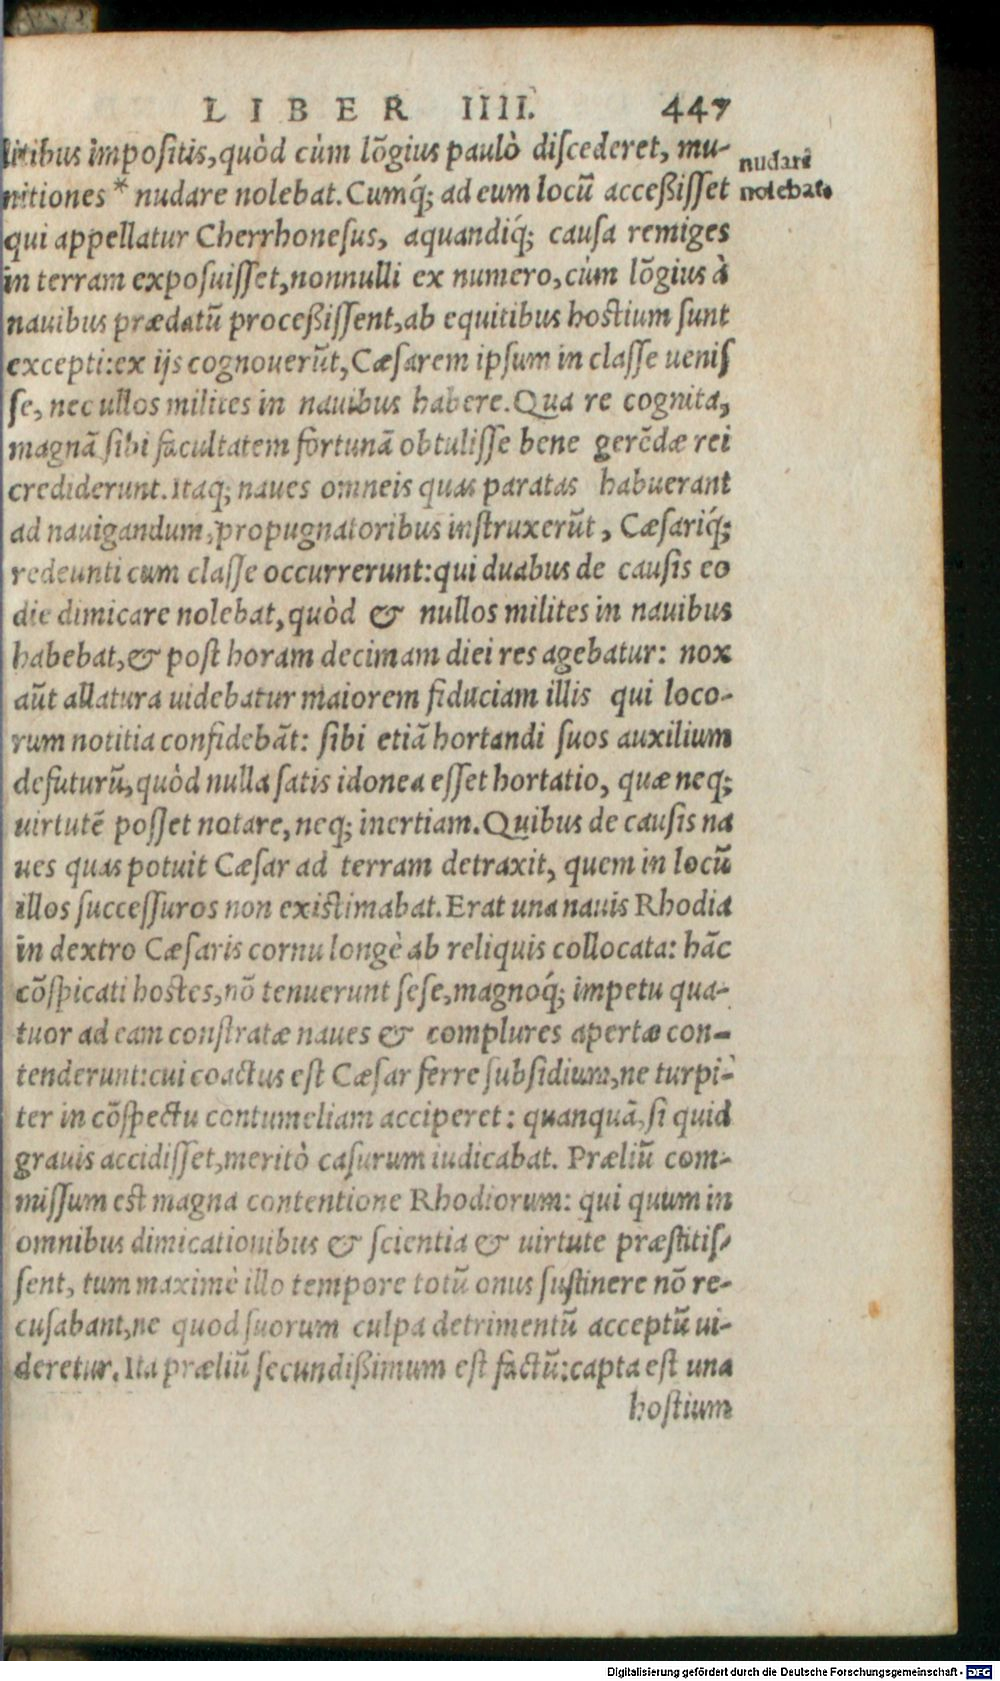 LIBER IIII. 447
litibus impositis, quòd cùm lõgius paulò discederet, mu-
nudari
nitiones * nudare nolebat. Cumq́; ad eum locũ acceßisset
nolebat.
qui appellatur Cherrhonesus, aquandiq́; causa remiges
in terram exposuisset, nonnulli ex numero, cùm lõgius à
nauibus prædatũ proceßissent, ab equitibus hostium sunt
excepti: ex ijs cognouerũt, Cæsarem ipsum in classe uenis
se, nec ullos milites in nauibus habere. Qua re cognita,
magnã sibi facultatem fortunã obtulisse bene gerẽdæ rei
crediderunt. Itaq; naues omneis quas paratas habuerant
ad nauigandum, propugnatoribus instruxerũt, Cæsariq́;
redeunti cum classe occurrerunt: qui duabus de causis eo
die dimicare nolebat, quòd & nullos milites in nauibus
habebat, & post horam decimam diei res agebatur: nox
aũt allatura uidebatur maiorem fiduciam illis qui loco-
rum notitia confidebãt: sibi etiã hortandi suos auxilium
defuturũ, quòd nulla satis idonea esset hortatio, quæ neq;
uirtutẽ posset notare, neq; inertiam. Quibus de causis na
ues quas potuit Cæsar ad terram detraxit, quem in locũ
illos successuros non existimabat. Erat una nauis Rhodia
in dextro Cæsaris cornu longè ab reliquis collocata: hãc
cõspicati hostes, nõ tenuerunt sese, magnoq́; impetu qua-
tuor ad eam constratæ naues & complures apertæ con-
tenderunt: cui coactus est Cæsar ferre subsidium, ne turpi-
ter in cõspectu contumeliam acciperet: quanquã, si quid
grauis accidisset, meritò casurum iudicabat. Præliũ com-
missum est magna contentione Rhodiorum: qui quum in
omnibus dimicationibus & scientia & uirtute præstitis-
sent, tum maximè illo tempore totũ onus sustinere nõ re-
cusabant, ne quod suorum culpa detrimentũ acceptũ ui-
deretur. Ita præliũ secundißimum est factũ: capta est una
hostium
Digitalisierung gefördert durch die Deutsche Forschungsgemeinschaft - DFG